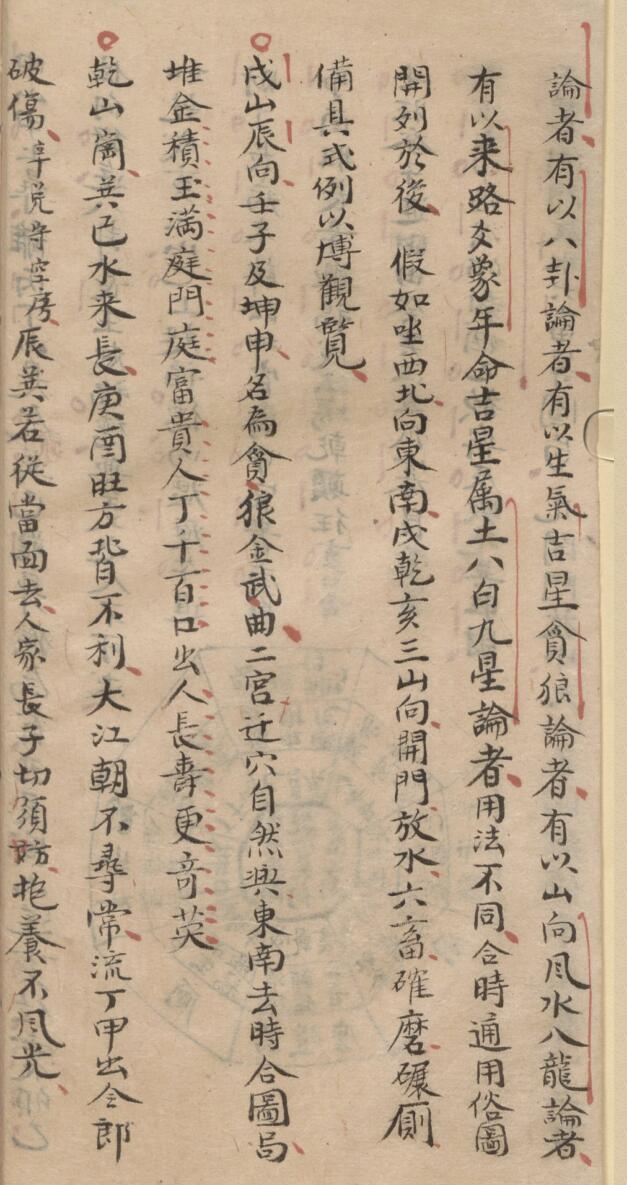 論者有以八卦論者有以生氣吉星貪狼論者有以山向風水八龍論者
有以来路爻象年命吉星属土八白九星論者用法不同合時通用俗圖
開列於後 假如坐西北向東南戌乾亥三山向開門放水六畜碓磨碾厠
備具式例以博觀覽
戌山辰向壬子及坤申名為貪狼金武曲二宮迁穴自然興東南去時合圖局
堆金積玉滿庭門庭富貴人丁千百口出人長壽更奇英
乾山崗巽巳水来長庚酉旺方皆不利大江朝不尋常流丁甲出令郎
破傷守空房辰巽若從當面去人家長子切須妨抱養不風光